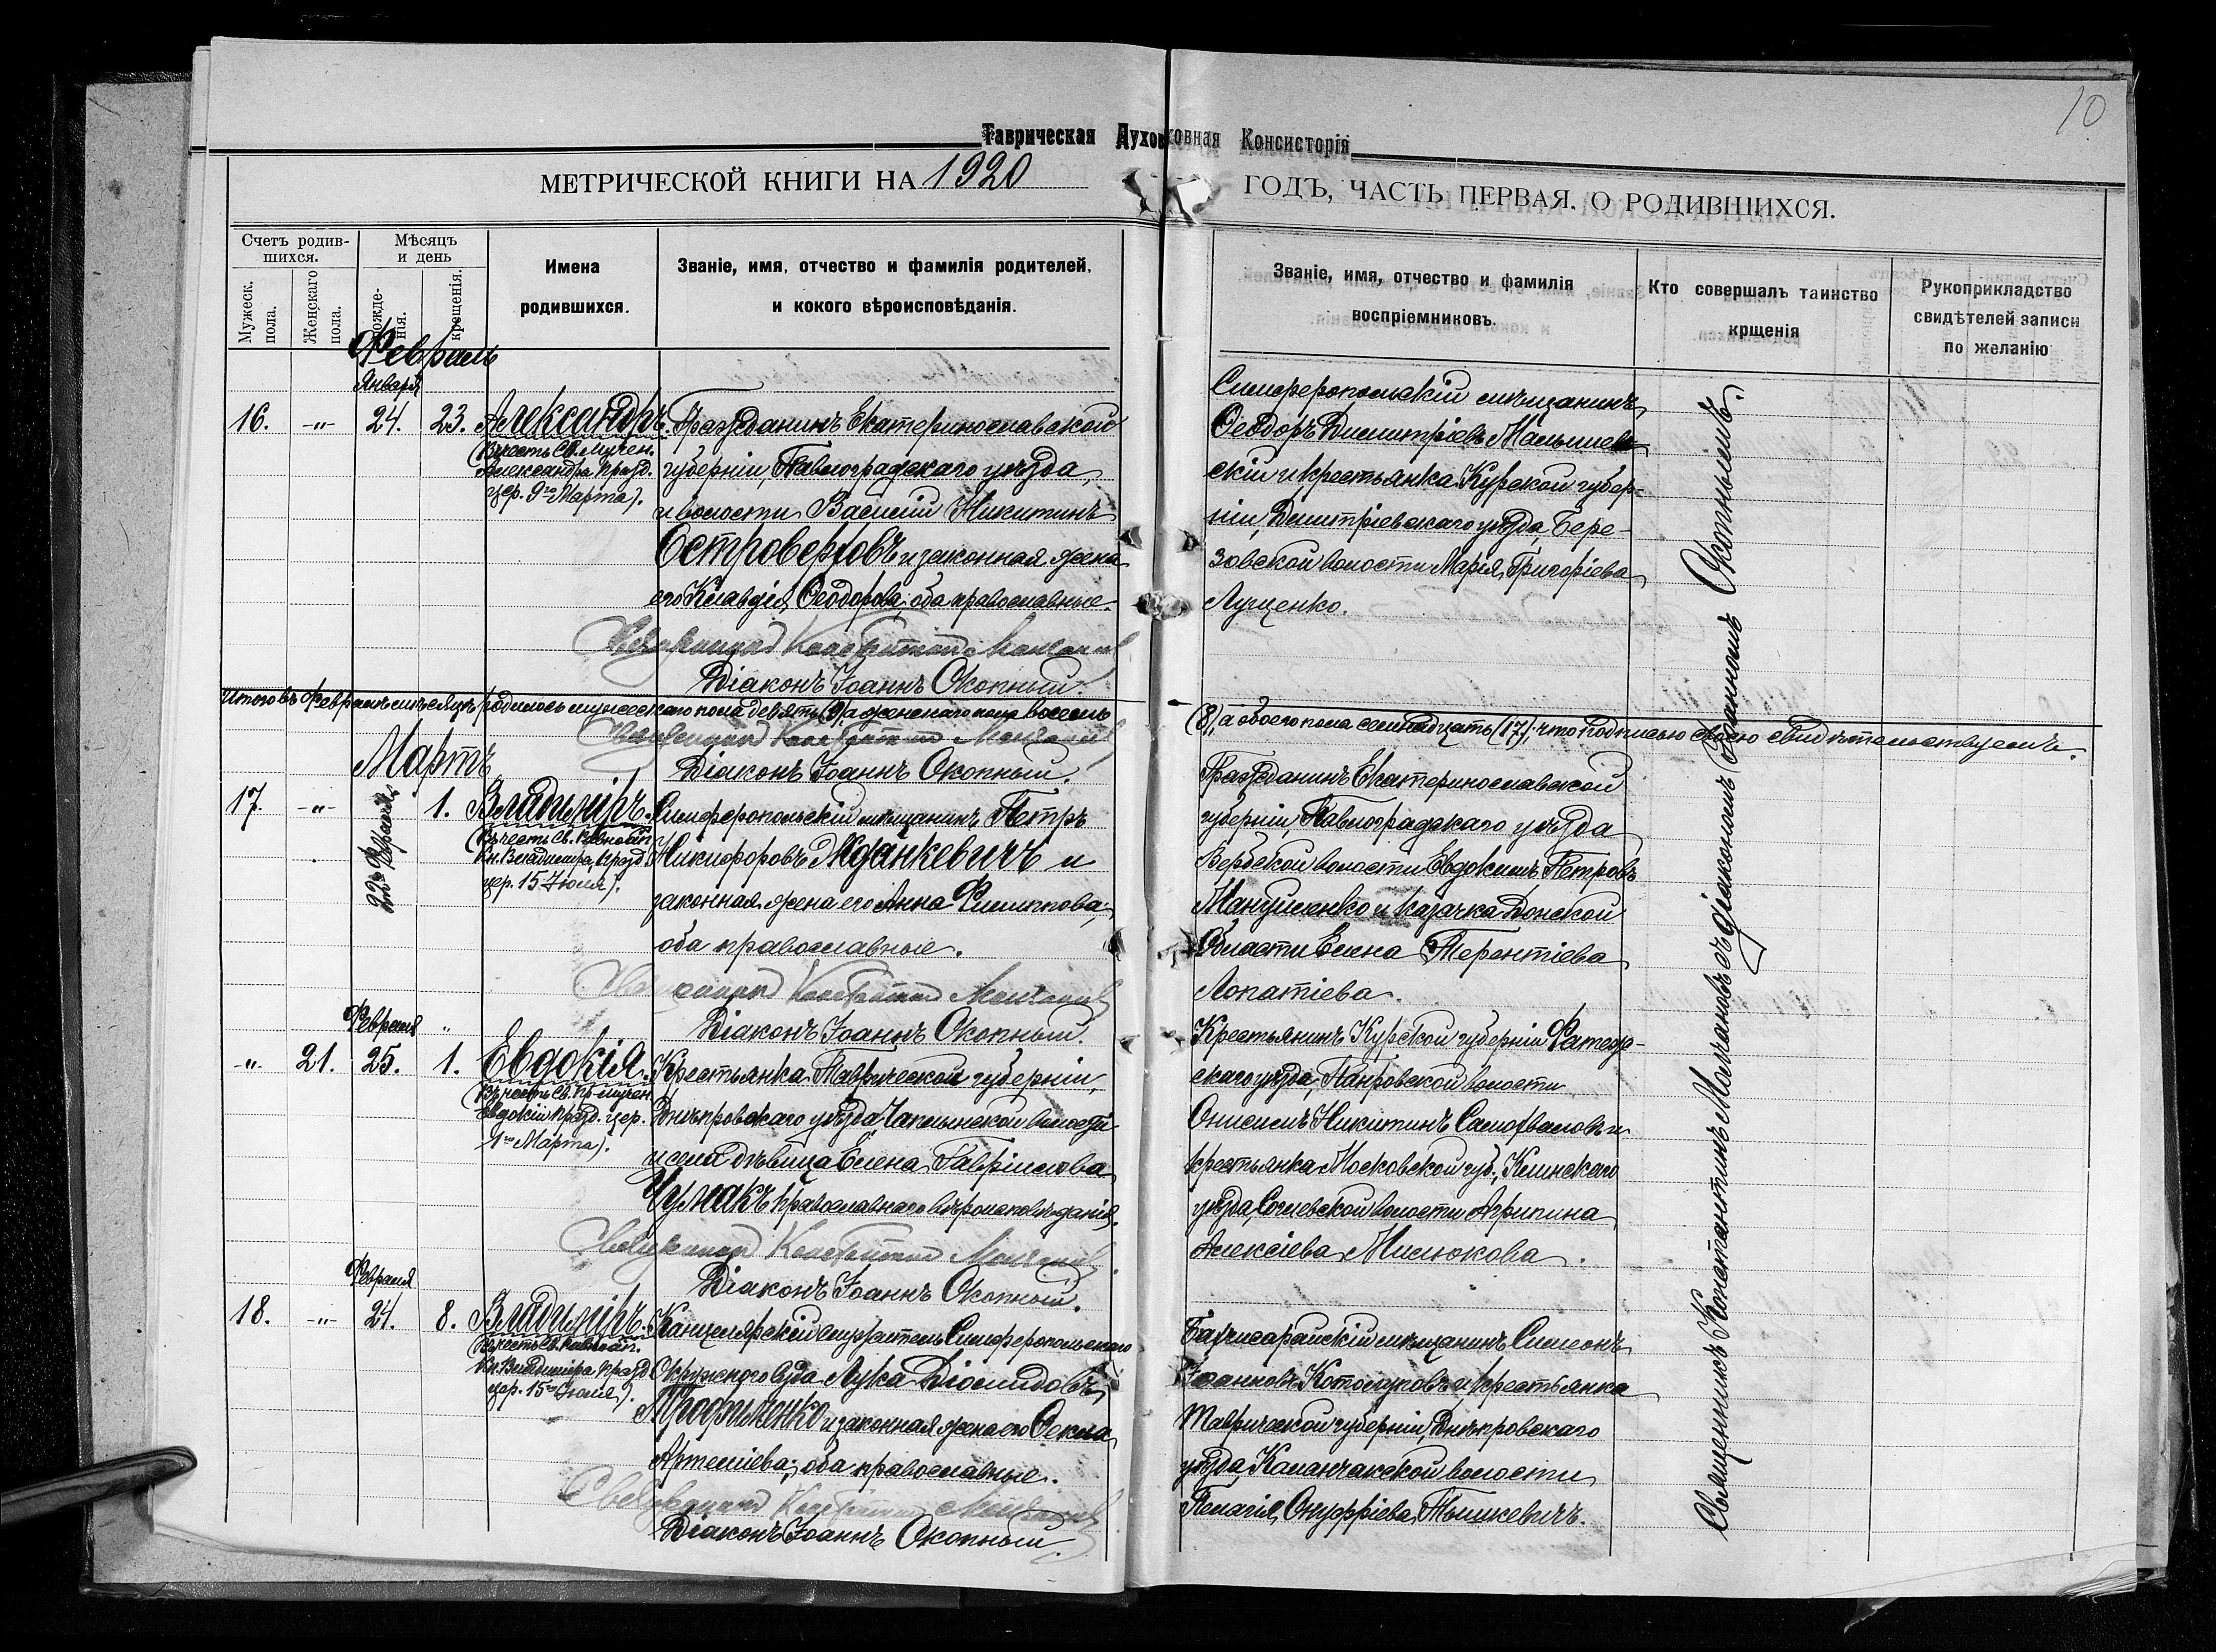 10
Таврическая Духовная Консисторія
МЕТРИЧЕСКОЙ КНИГИ НА 1920 ГОДЪ, ЧАСТЬ ПЕРВАЯ. О РОДИВШИХСЯ.
Счетъ родив-
шихся.
Мужеск. пола.
Женскаго пола.
Мѣсяцъ
и день
рожде-
нія.
крещенія.
Имена
родившихся.
Званіе, имя, отчество и фамилія родителей,
и кокого вѣроисповѣданія.
Званіе, имя, отчество и фамилія
воспріемниковъ.
Кто совершалъ таинство
крщенія
Рукоприкладство
свидѣтелей записи
по желанію
Февраль
Января
16. -"- 24. 23. Александръ.
(Въ честь Св. мучен.
Александра празд.
цер. 9го Марта).
Гражданинъ Екатеринославской
губерніи, Павлоградскаго уѣзда,
и волости Василій Никитинъ
Островерховъ и законная жена
его Клавдія Ѳеодорова, оба православные.
Священникъ Константинъ
Діаконъ Іоаннъ Окопный.
Симферопольскій мѣщанинъ
Ѳеодоръ Димитріевъ Малышев-
скій и крестьянка Курской губер-
ніи, Димитріевскаго уѣзда, Бере-
зовской волости Марія Григоріева
Лущенко.
Итого въ Февралѣ мѣсяцѣ родилось мужескаго пола девять (9), а женскаго пола восемь
(8), а обоего пола семнадцать (17), что подписью своею свидѣтельствуемъ.
Священникъ Константинъ
Діаконъ Іоаннъ Окопный.
Мартъ
17. -"- 22го Февраля 1. Владиміръ.
(Въ честь Св. Равноап.
Кн. Владиміра, празд.
цер. 15 Іюля).
Симферопольскій мѣщанинъ Петръ
Никифоровъ Жданкевичъ и
законная жена его Анна Филиппова,
оба православные.
Священникъ Константинъ
Діаконъ Іоаннъ Окопный.
Гражданинъ Екатеринославской
губерніи, Павлоградскаго уѣзда
Вербской волости Евдокимъ Петровъ
Мануйленко и казачка Донской
Области Елена Терентіева
Лопатіева.
Февраля "
-"- 21. 25. 1. Евдокія.
(Въ честь Св. пр-мучен.
Евдокіи празд. цер.
1го Марта).
Крестьянка Таврической губерніи,
Днѣпровскаго уѣзда, Чаплынской волости
и села дѣвица Елена Гавріилова
Чумакъ православнаго вѣроисповѣданія.
Священникъ Константинъ
Діаконъ Іоаннъ Окопный.
Крестьянинъ Курской губерніи
скаго уѣзда, волости
Онисимъ Никитинъ Самохваловъ и
крестьянка Московской губ., Клинскаго
уѣзда, волости Агрипина
Алексіева Милюкова.
Февраля
18. -"- 24. 8. Владиміръ.
(Въ честь Св. Равноап.
Кн. Владиміра празд
цер. 15го Іюля).
Канцелярскій служитель Симферопольскаго
Окружного Суда Лука Діомидовъ
Трофименко и законная жена его Ѳекла
Артеміева, оба православные.
Священникъ Константинъ
Діаконъ Іоаннъ Окопный.
Бахчисарайскій мѣщанинъ Симеонъ
Іоанновъ и крестьянка
Таврической губерніи, Днѣпровскаго
уѣзда, Каланчакской волости
Пелагія Онуфріева Тышкевичъ.
Священникъ Константинъ съ діакономъ Іоанномъ Окопнымъ.